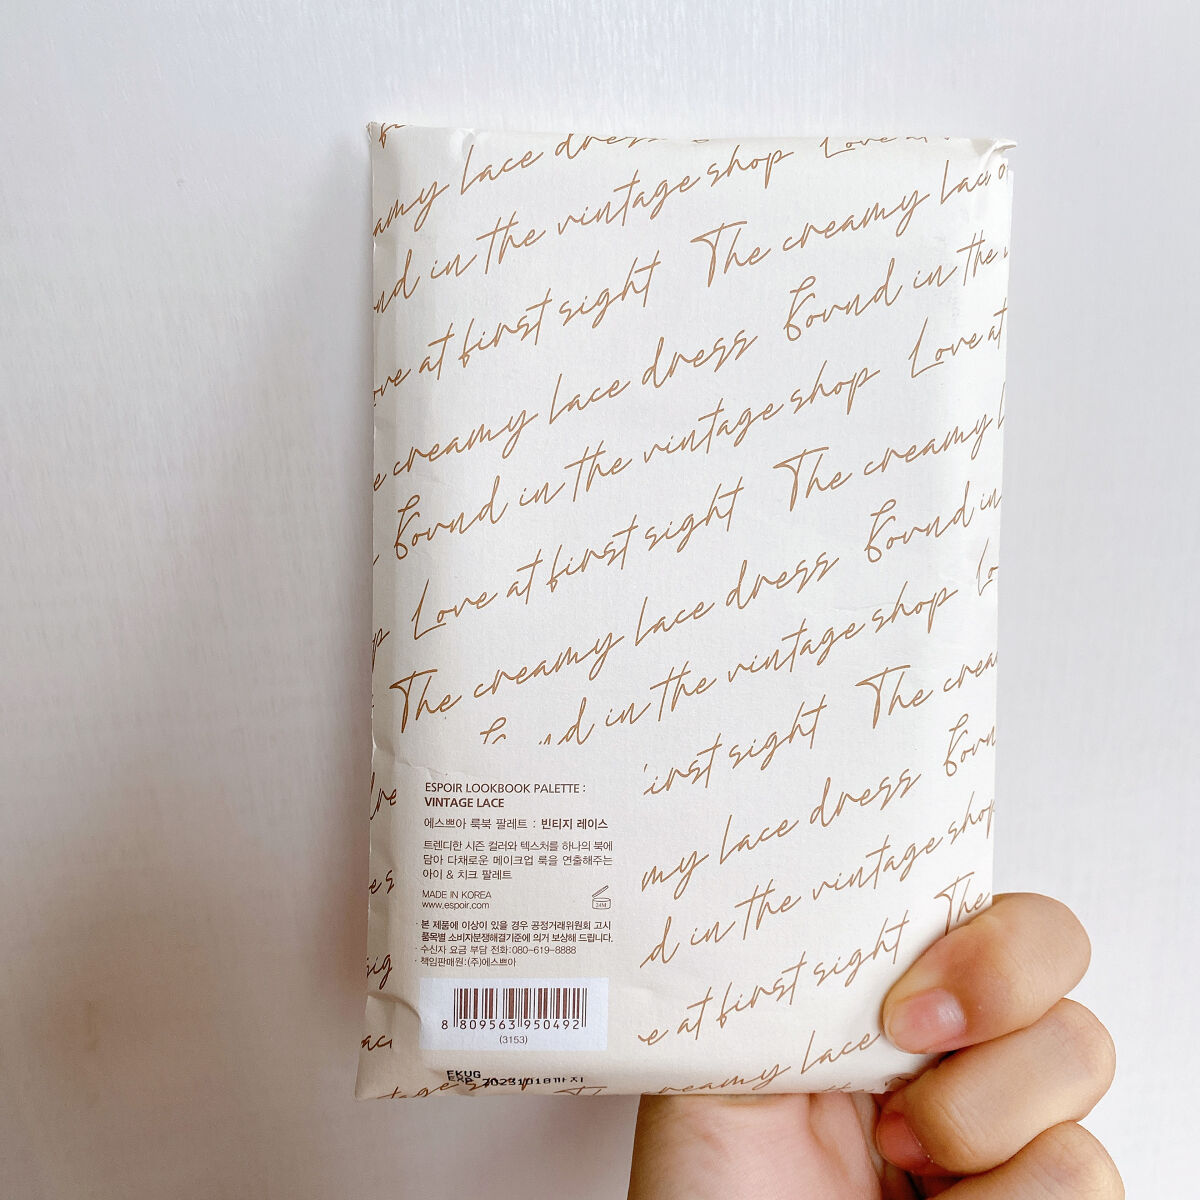 lace dress
in the vintage shop Love at
at first sight The creamy
creamy lace dress Found in the
Found in the vintage shop Love at
Love at first sight The creamy
The creamy lace dress Found in
in the vintage shop
sight The
lace dress
in the vintage shop
at first sight The
creamy lace
ESPOIR LOOKBOOK PALETTE :
VINTAGE LACE
에스쁘아 룩북 팔레트 : 빈티지 레이스
트렌디한 시즌 컬러와 텍스처를 하나의 북에
담아 다채로운 메이크업 룩을 연출해주는
아이 & 치크 팔레트
MADE IN KOREA
www.espoir.com
24M
· 본 제품에 이상이 있을 경우 공정거래위원회 고시
품목별 소비자분쟁해결기준에 의거 보상해 드립니다.
· 수신자 요금 부담 전화:080-619-8888
· 책임판매원:(주)에스쁘아
8 809563 950492
(3153)
EXP 20231018까지